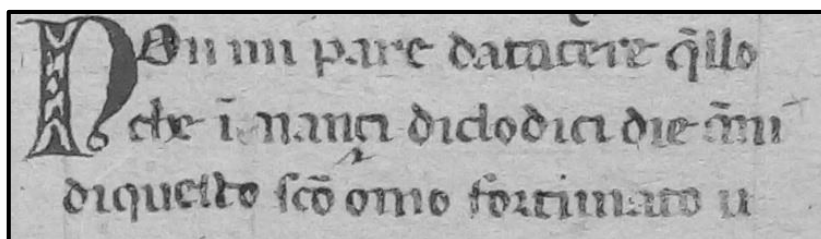 NOn mi pare datacere q̄llo
che ī nançi diclodici die āni
diquesto ſcō omo fortunato u